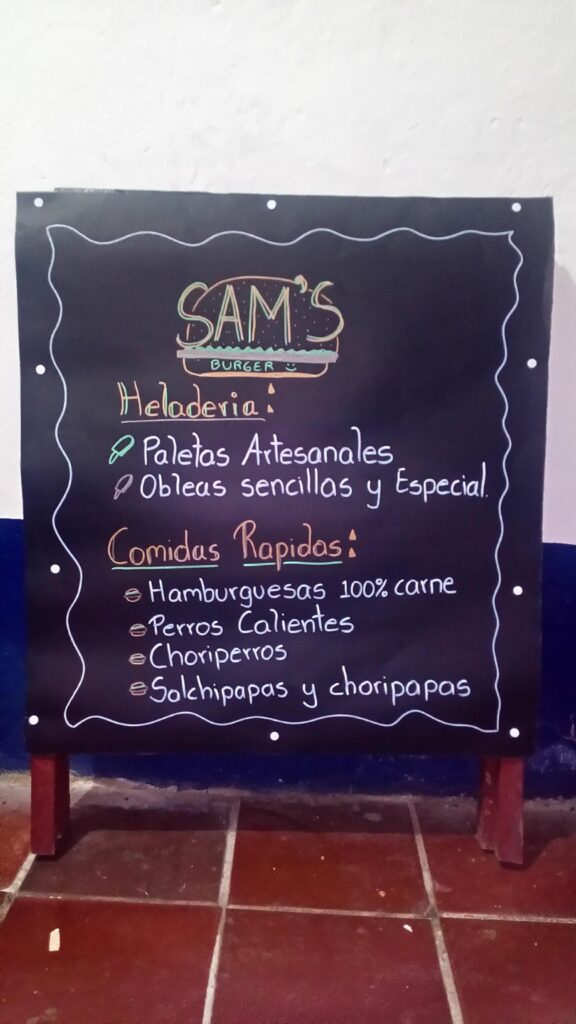 SAM'S
BURGER
Heladeria:
Paletas Artesanales
Obleas sencillas y Especial.
Comidas Rapidas:
Hamburguesas 100% carne
Perros Calientes
Choriperros
Salchipapas y choripapas